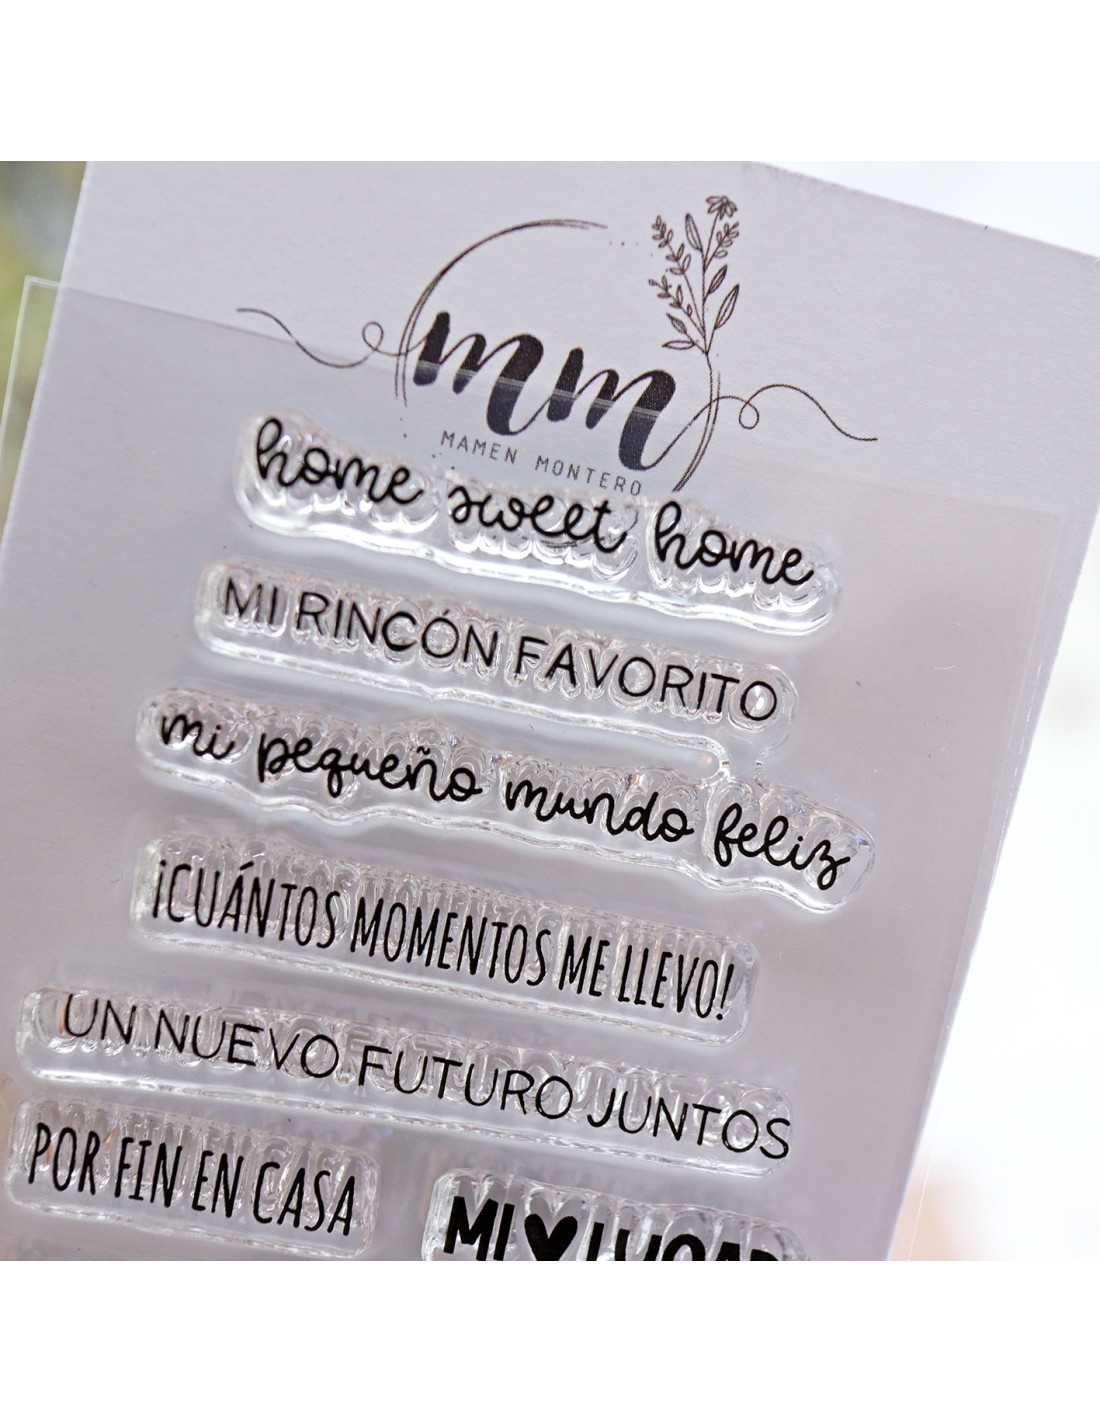 mm
MAMEN MONTERO
home sweet home
MI RINCÓN FAVORITO
mi pequeño mundo feliz
¡CUÁNTOS MOMENTOS ME LLEVO!
UN NUEVO FUTURO JUNTOS
POR FIN EN CASA
MI ♥ LUGAR